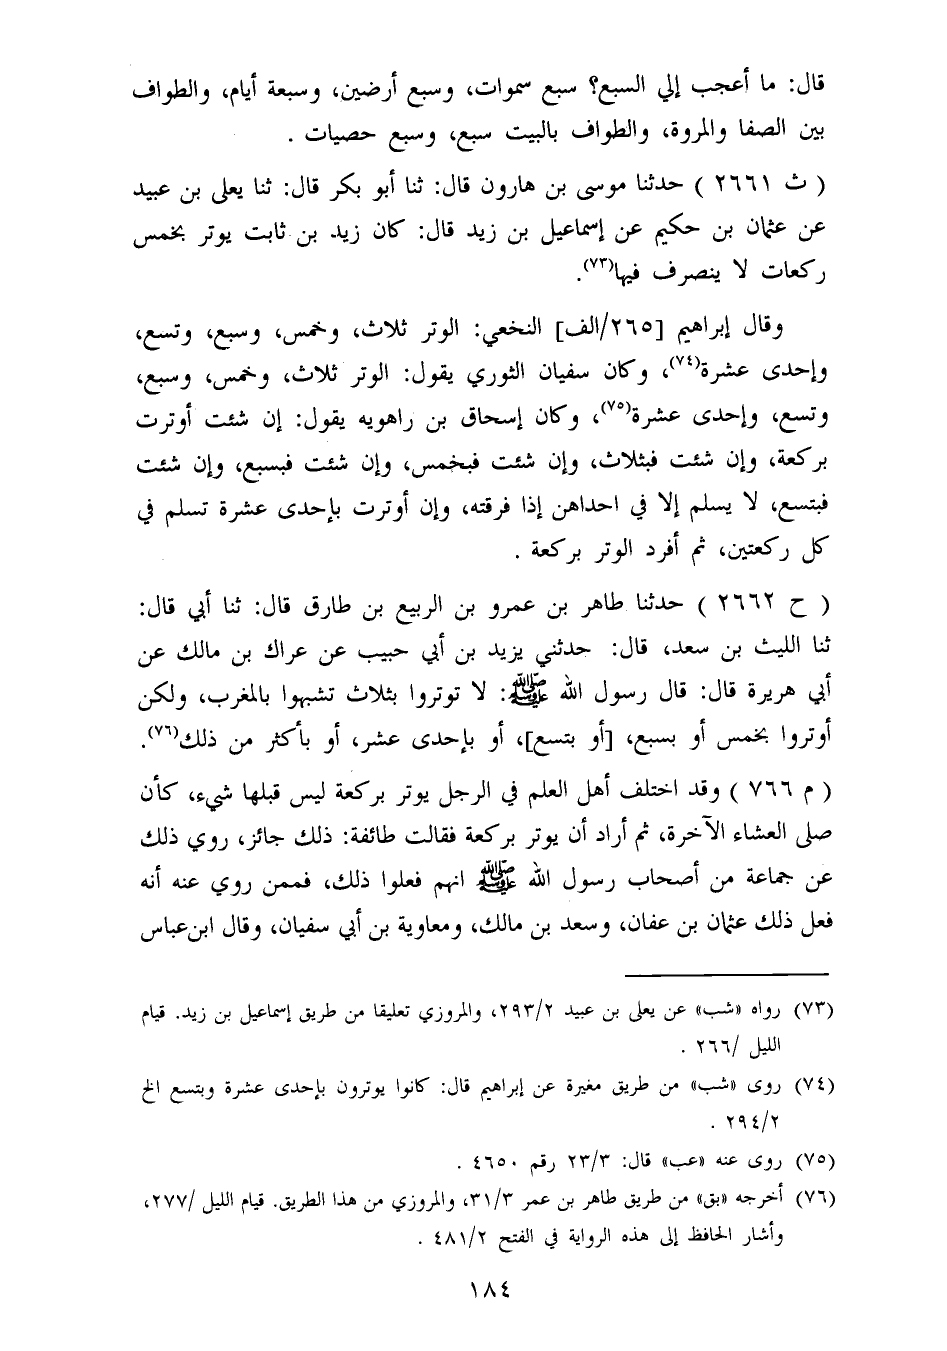 قال: ما أعجب إلي السبع؟ سبع سموات، وسبع أرضين، وسبعة أيام، والطواف
بين الصفا والمروة، والطواف بالبيت سبع، وسبع حصيات .
( ث ٢٦٦١ ) حدثنا موسى بن هارون قال: ثنا أبو بكر قال: ثنا يعلى بن عبيد
عن عثمان بن حكيم عن إسماعيل بن زيد قال: كان زيد بن ثابت يوتر بخمس
ركعات لا ينصرف فيها(٧٣).
وقال إبراهيم [٢٦٥/الف] النخعي: الوتر ثلاث، وخمس، وسبع، وتسع،
وإحدى عشرة(٧٤)، وكان سفيان الثوري يقول: الوتر ثلاث، وخمس، وسبع،
وتسع، وإحدى عشرة(٧٥)، وكان إسحاق بن راهويه يقول: إن شئت أوترت
بركعة، وإن شئت فبثلاث، وإن شئت فبخمس، وإن شئت فبسبع، وإن شئت
فبتسع، لا يسلم إلا في احداهن إذا فرقته، وإن أوترت بإحدى عشرة تسلم في
كل ركعتين، ثم أفرد الوتر بركعة .
( ح ٢٦٦٢ ) حدثنا طاهر بن عمرو بن الربيع بن طارق قال: ثنا أبي قال:
ثنا الليث بن سعد، قال: حدثني يزيد بن أبي حبيب عن عراك بن مالك عن
أبي هريرة قال: قال رسول الله ﷺ: لا توتروا بثلاث تشبهوا بالمغرب، ولكن
أوتروا بخمس أو بسبع، [أو بتسع]، أو بإحدى عشر، أو بأكثر من ذلك(٧٦).
( م ٧٦٦ ) وقد اختلف أهل العلم في الرجل يوتر بركعة ليس قبلها شيء، كأن
صلى العشاء الآخرة، ثم أراد أن يوتر بركعة فقالت طائفة: ذلك جائز، روي ذلك
عن جماعة من أصحاب رسول الله ﷺ انهم فعلوا ذلك، فممن روي عنه أنه
فعل ذلك عثمان بن عفان، وسعد بن مالك، ومعاوية بن أبي سفيان، وقال ابن عباس
(٧٣) رواه «شب» عن يعلى بن عبيد ٢٩٣/٢، والمروزي تعليقا من طريق إسماعيل بن زيد. قيام
الليل /٢٦٦ .
(٧٤) روى «شب» من طريق مغيرة عن إبراهيم قال: كانوا يوترون بإحدى عشرة وبتسع الخ
٢٩٤/٢ .
(٧٥) روى عنه «عب» قال: ٢٣/٣ رقم ٤٦٥٠ .
(٧٦) أخرجه «بق» من طريق طاهر بن عمر ٣١/٣، والمروزي من هذا الطريق. قيام الليل /٢٧٧،
وأشار الحافظ إلى هذه الرواية في الفتح ٤٨١/٢ .
١٨٤